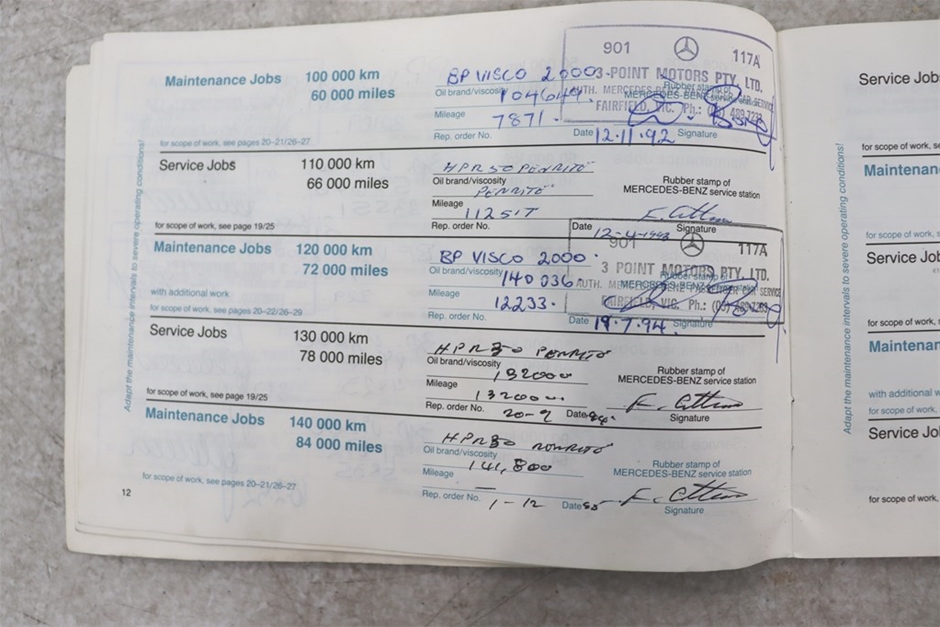 Maintenance Jobs 100 000 km
60 000 miles
BP VISCO 2000
Oil brand/viscosity
Mileage
7871.
Rep. order No.
Date 12.11.92 Signature
901 117A
3-POINT MOTORS PTY. LTD.
Rubber stamp of
AUTH. MERCEDES-BENZ CAR SERVICE
MERCEDES-BENZ service station
FAIRFIELD, VIC. Ph.:
for scope of work, see pages 20–21/26–27
Service Jobs 110 000 km
66 000 miles
HPR 50 PENRITO
Oil brand/viscosity
PENRITO
Mileage
Rep. order No.
Rubber stamp of
MERCEDES-BENZ service station
Date 12-4-1993 Signature
for scope of work, see page 19/25
Maintenance Jobs 120 000 km
72 000 miles
with additional work
for scope of work, see pages 20–22/26–29
BP VISCO 2000.
Oil brand/viscosity
140 036
Mileage
12233.
Rep. order No.
Date 19.7.94. Signature
901 117A
3 POINT MOTORS PTY. LTD.
Rubber stamp of
AUTH. MERCEDES-BENZ PASSENGER CAR SERVICE
MERCEDES-BENZ service station
FAIRFIELD, VIC. Ph.: (03)
Service Jobs 130 000 km
78 000 miles
HPR 30 PENRITO
Oil brand/viscosity
132000
Mileage
132000
Rep. order No.
20-9 Date Signature
Rubber stamp of
MERCEDES-BENZ service station
for scope of work, see page 19/25
Maintenance Jobs 140 000 km
84 000 miles
HPR 30
Oil brand/viscosity
141,800
Mileage
Rep. order No.
1-12 Date 95 Signature
Rubber stamp of
MERCEDES-BENZ service station
for scope of work, see pages 20–21/26–27
12
Adapt the maintenance intervals to severe operating conditions!
Service Job
for scope of work, se
Maintenan
for scope of work, s
Service Jo
for scope of work, s
Maintenan
with additional w
for scope of work,
Service Jo
for scope of work,
Adapt the maintenance intervals to severe operating conditions!